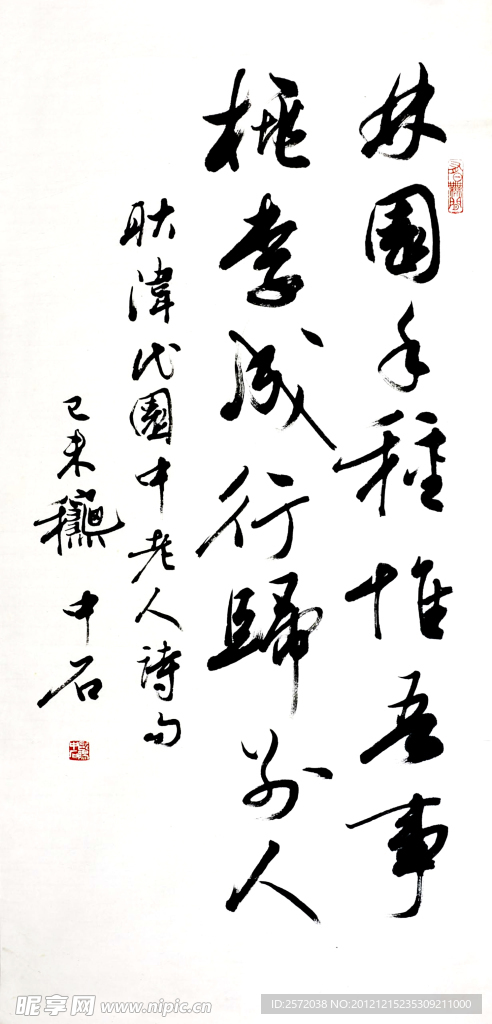 林園手種惟吾事
桃李成行歸別人
耿湋代園中老人詩句
己未龝中石
昵享网 www.nipic.com
ID:2572038 NO:20121215235309211000